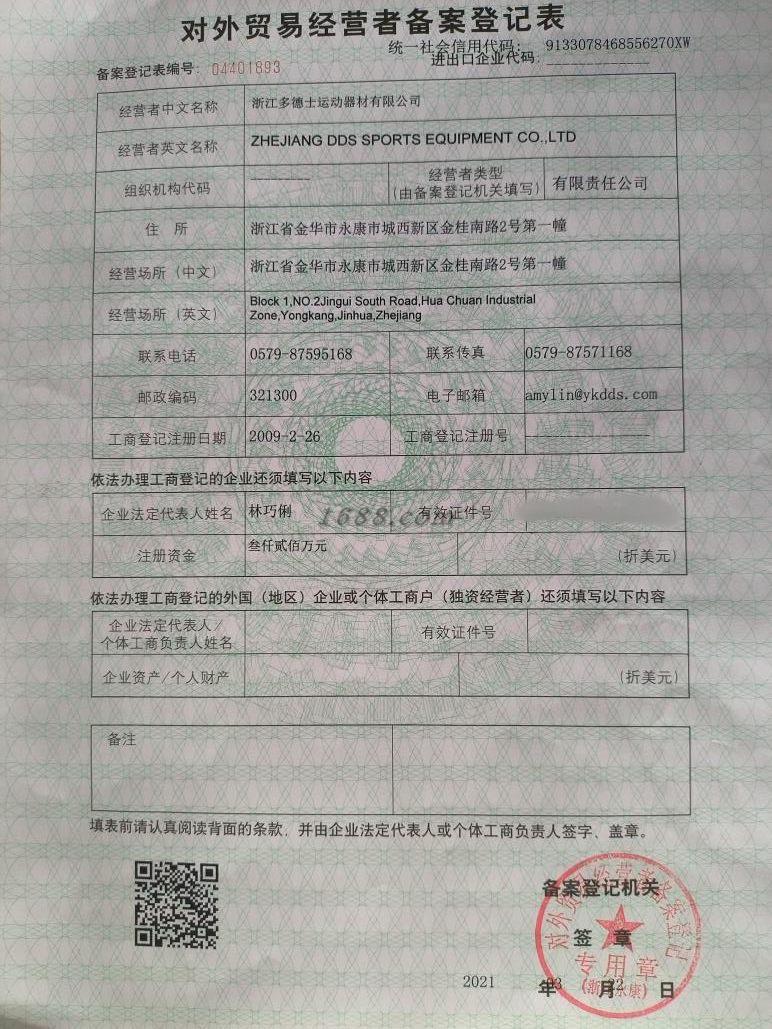 对外贸易经营者备案登记表
统一社会信用代码: 9133078468556270XW
备案登记表编号: 04401893
进出口企业代码:
经营者中文名称 浙江多德士运动器材有限公司
经营者英文名称 ZHEJIANG DDS SPORTS EQUIPMENT CO.,LTD
组织机构代码 经营者类型 (由备案登记机关填写) 有限责任公司
住 所 浙江省金华市永康市城西新区金桂南路2号第一幢
经营场所（中文） 浙江省金华市永康市城西新区金桂南路2号第一幢
经营场所（英文） Block 1,NO.2Jingui South Road,Hua Chuan Industrial
Zone,Yongkang,Jinhua,Zhejiang
联系电话 0579-87595168 联系传真 0579-87571168
邮政编码 321300 电子邮箱 amylin@ykdds.com
工商登记注册日期 2009-2-26 工商登记注册号
依法办理工商登记的企业还须填写以下内容
企业法定代表人姓名 林巧俐 有效证件号
1688.com
注册资金 叁仟贰佰万元 (折美元)
依法办理工商登记的外国（地区）企业或个体工商户（独资经营者）还须填写以下内容
企业法定代表人/
个体工商负责人姓名 有效证件号
企业资产/个人财产 (折美元)
备注
填表前请认真阅读背面的条款，并由企业法定代表人或个体工商负责人签字、盖章。
备案登记机关
签 章
对外贸易经营者备案登记
专用章
(浙江永康)
2021 年 03 月 22 日